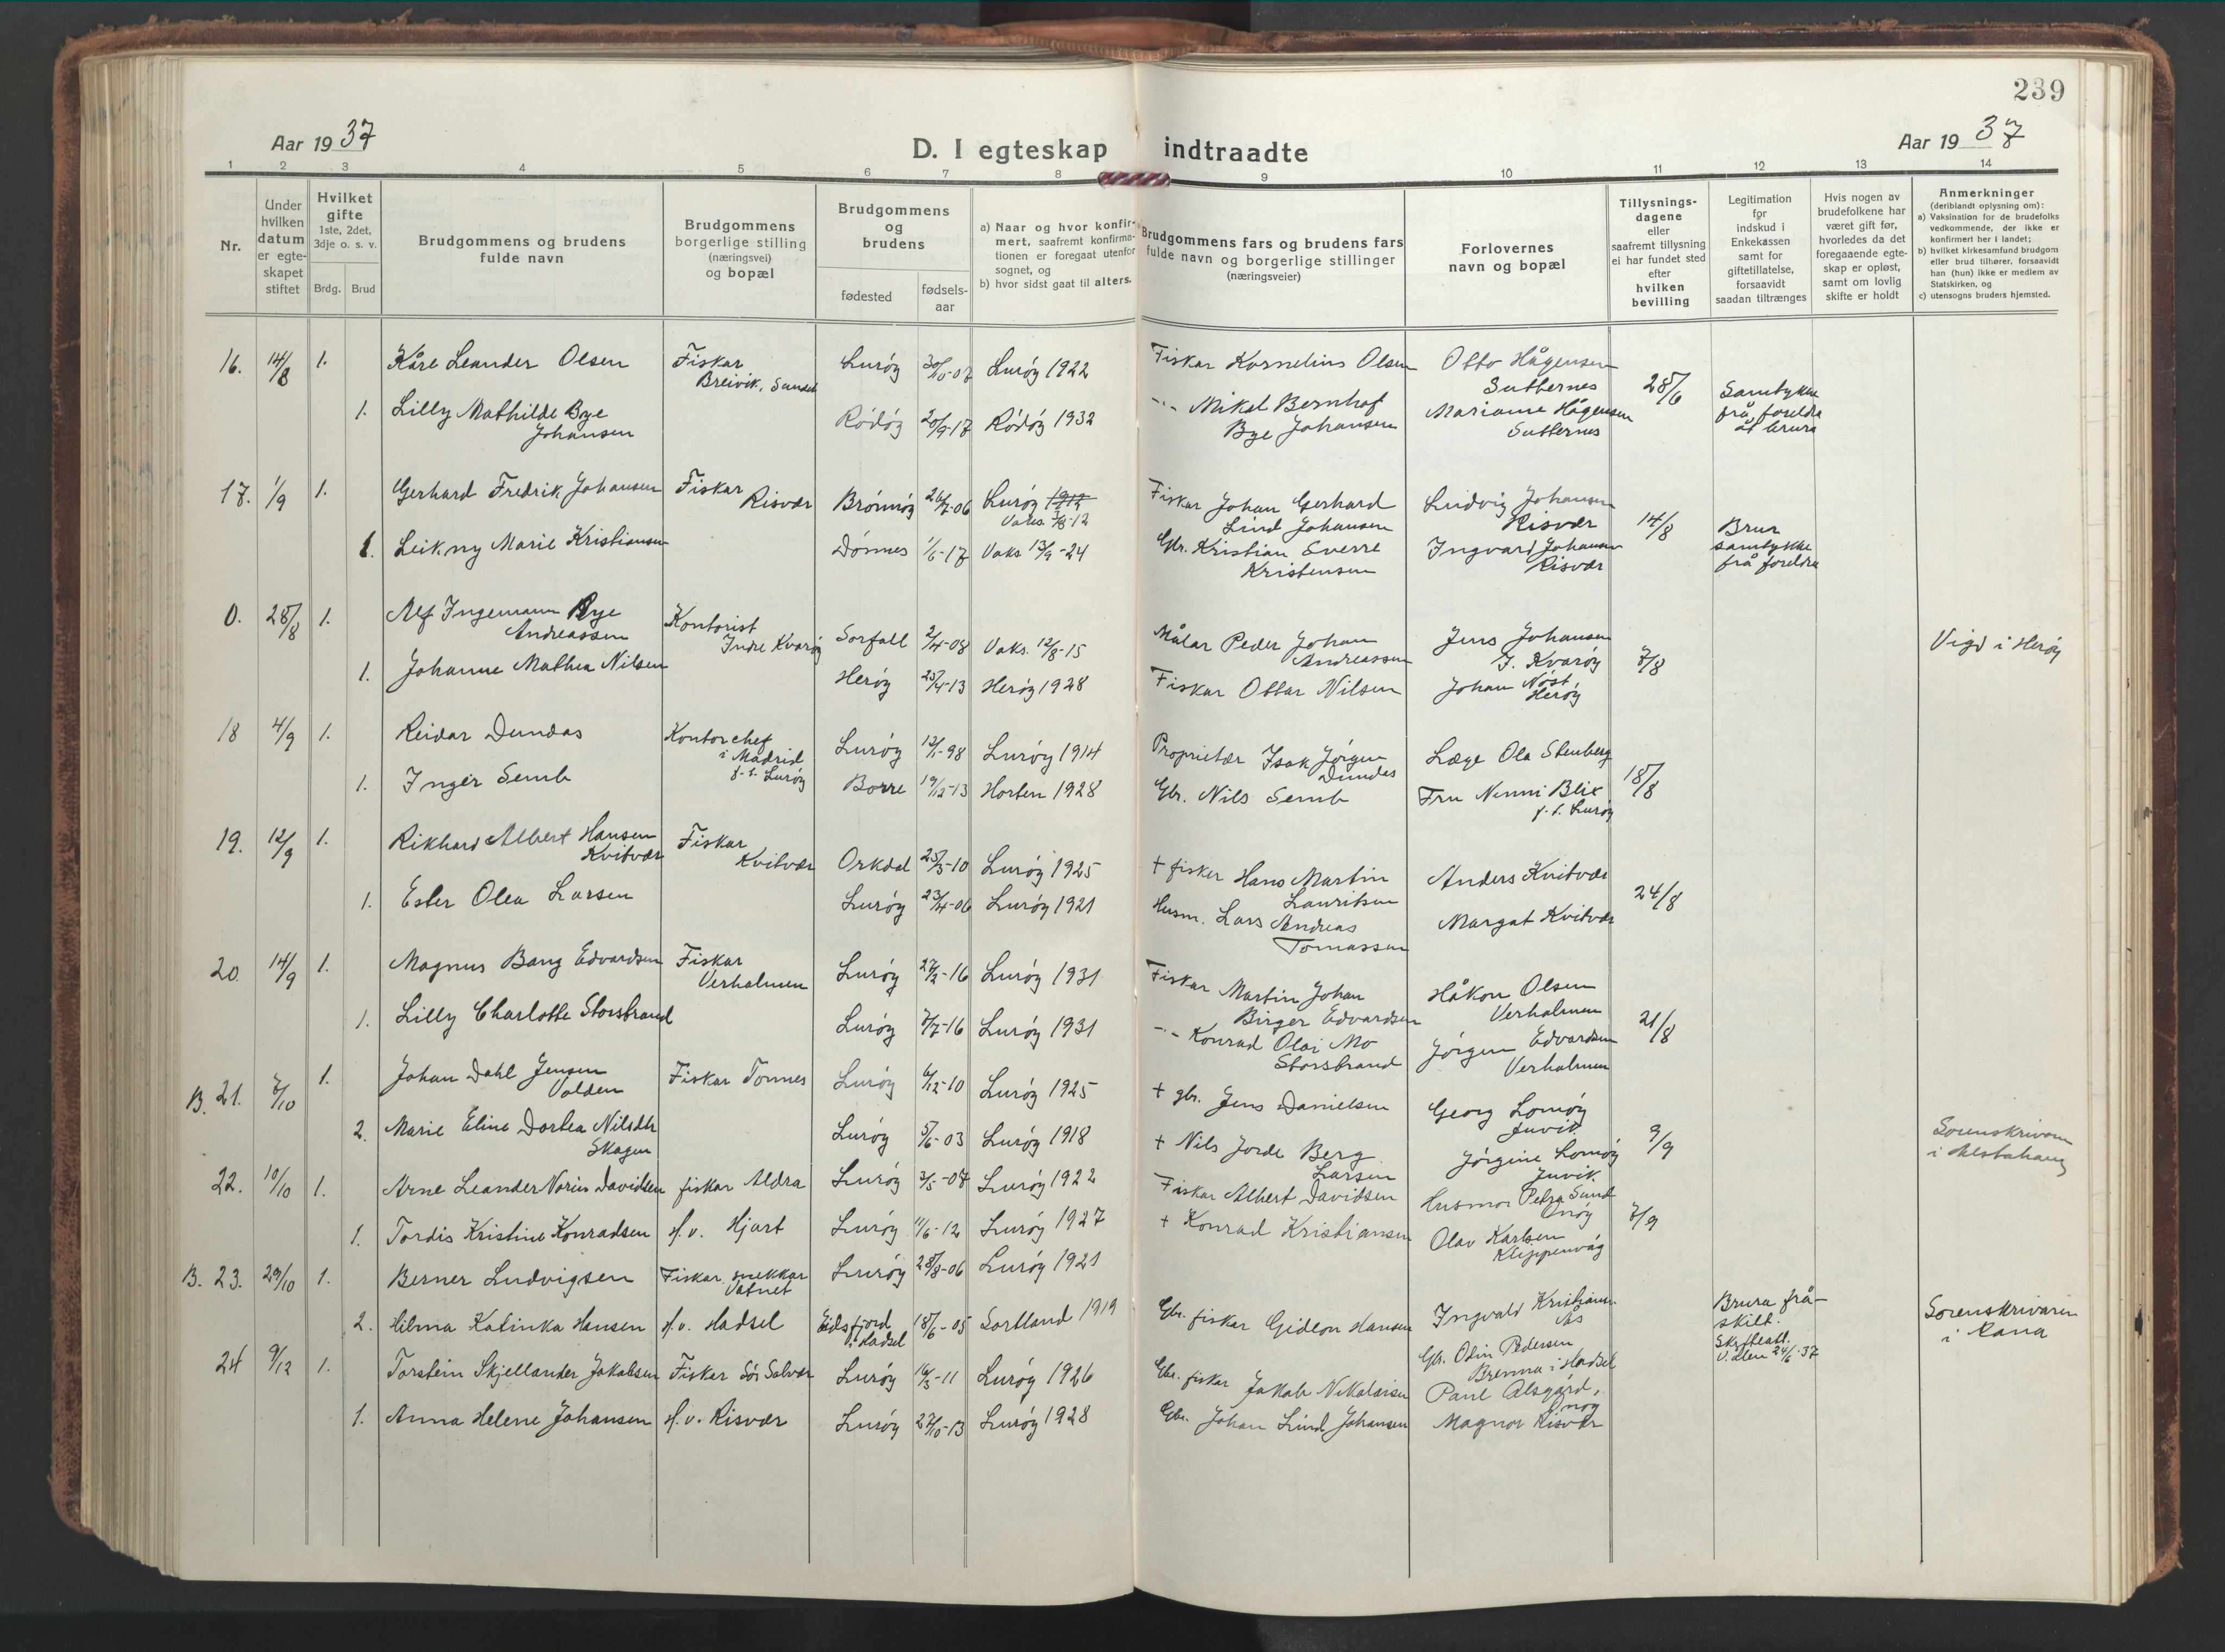 239
Aar 1937
D. I egteskap indtraadte
Aar 1937
1 2 3 4 5 6 7 8 9 10 11 12 13 14
Nr.
Under hvilken datum er egte-skapet stiftet
Hvilket gifte 1ste, 2det, 3dje o. s. v.
Brdg. Brud
Brudgommens og brudens fulde navn
Brudgommens borgerlige stilling (næringsvei) og bopæl
Brudgommens og brudens
fødested
fødsels-aar
a) Naar og hvor konfir-mert, saafremt konfirma-tionen er foregaat utenfor sognet, og
b) hvor sidst gaat til alters.
Brudgommens fars og brudens fars fulde navn og borgerlige stillinger (næringsveier)
Forlovernes navn og bopæl
Tillysnings-dagene eller saafremt tillysning ei har fundet sted efter hvilken bevilling
Legitimation for indskud i Enkekassen samt for giftetillatelse, forsaavidt saadan tiltrænges
Hvis nogen av brudefolkene har været gift før, hvorledes da det foregaaende egte-skap er opløst, samt om lovlig skifte er holdt
Anmerkninger (deriblandt oplysning om):
a) Vaksination for de brudefolks vedkommende, der ikke er konfirmert her i landet;
b) hvilket kirkesamfund brudgom eller brud tilhører, forsaavidt han (hun) ikke er medlem av Statskirken, og
c) utensogns bruders hjemsted.
16. 14/8 1. Kåre Leander Olsen Fiskar Breivik, Lurøy 30/10-07 Lurøy 1922 Fiskar Kornelius Olsen Otto Hågensen Sutternes 28/6 Samtykke frå foreldre åt brura
1. Lilly Mathilde Bye Johansen Rødøy 20/9-17 Rødøy 1932 -"- Mikal Bernhof Bye Johansen Marianne Hågensen Sutternes
17. 1/9 1. Gerhard Fredrik Johansen Fiskar Risvær Brønnøy 26/7-06 Lurøy Vaks. 3/8-12 Fiskar Johan Gerhard Lind Johansen Ludvig Johansen Risvær 14/8 Brur samtykke frå foreldre
1. Leikny Marie Kristiansen Dønnes 1/6-17 Vaks 13/9-24 Gbr. Kristian Sverre Kristensen Ingvard Johansen Risvær
0. 28/8 1. Alf Ingemann Bye Andreassen Kontorist Indre Kvarøy Sørfall 2/4-08 Vaks. 12/8-15 Målar Peder Johan Andreassen Jens Johansen I. Kvarøy 7/8 Vigd i Herøy
1. Johanne Mathea Nilsen Herøy 25/4-13 Herøy 1928 Fiskar Ottar Nilsen Johan Nøst Herøy
18 4/9 1. Reidar Dundas Kontorchef i Madrid f.t. Lurøy Lurøy 12/1-98 Lurøy 1914 Proprietær Isak Jørgen Dundas Læge Ola Stenberg 18/8
1. Inger Semb Borre 19/12-13 Horten 1928 Gbr. Nils Semb Fru Nenni Blix f.t. Lurøy
19. 12/9 1. Rikhard Albert Hansen Kvitvær Fiskar Kvitvær Orkdal 25/3-10 Lurøy 1925 + fisker Hans Martin Lauritsen Anders Kvitvær 24/8
1. Ester Olea Larsen Lurøy 23/4-06 Lurøy 1921 Husm. Lars Andreas Tomassen Margat Kvitvær
20. 14/9 1. Magnus Bang Edvardsen Fiskar Verholmen Lurøy 27/2-16 Lurøy 1931 Fiskar Martin Johan Birger Edvardsen Håkon Olsen Verholmen 21/8
1. Lilly Charlotte Storstrand Lurøy 7/7-16 Lurøy 1931 -"- Konrad Olai Mo Storstrand Jørgen Edvardsen Verholmen
B. 21. 7/10 1. Johan Dahl Jensen Volden Fiskar Tonnes Lurøy 6/12-10 Lurøy 1925 + gbr. Jens Danielsen Georg Lomøy Juvik 9/9 Sorenskrivaren i Alstahaug
2. Marie Eline Dortea Nilsdtr Skagen Lurøy 5/6-03 Lurøy 1918 + Nils Jorde Berg Larsen Jørgine Lomøy Juvik
22. 10/10 1. Arne Leander Norius Davidsen fiskar Aldra Lurøy 3/5-07 Lurøy 1922 Fiskar Albert Davidsen Husmor Petra Sund Onøy 7/9
1. Tordis Kristine Konradsen H.v. Hjart Lurøy 11/6-12 Lurøy 1927 + Konrad Kristiansen Olav Karlsen Klippenvåg
B. 23. 29/10 1. Berner Ludvigsen Fiskar, snekkar Vatnet Lurøy 28/8-06 Lurøy 1921 Ingvald Kristians. Ås Brura frå-skilt. Sorenskrivaren i Rana
2. Hilma Katinka Hansen H.v. Hadsel Eidsfjord i Hadsel 18/6-05 Sortland 1919 Gbr. fiskar Gideon Hansen Gbr. Odin Pedersen Brenna i Hadsel 24/6-37
24 9/12 1. Torstein Skjellander Jakobsen Fiskar Sør Solvær Lurøy 16/3-11 Lurøy 1926 Gbr. fiskar Jakob Nikolaisen Paul Alsgård, Onøy
1. Anna Helene Johansen H.v. Risvær Lurøy 27/10-13 Lurøy 1928 Gbr. Johan Lind Johansen Magnor Risvær